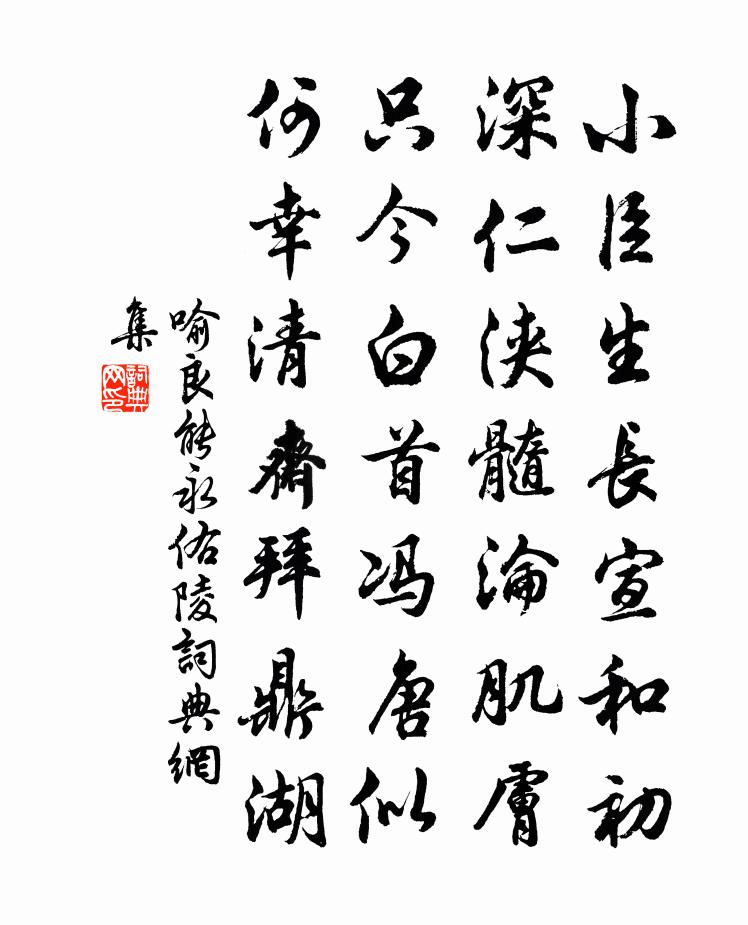 小臣生長宣和初
深仁浹髓淪肌膚
只今白首馮唐似
何幸清齋拜鼎湖
喻良能永佑陵詞典網
集
詞典
网印